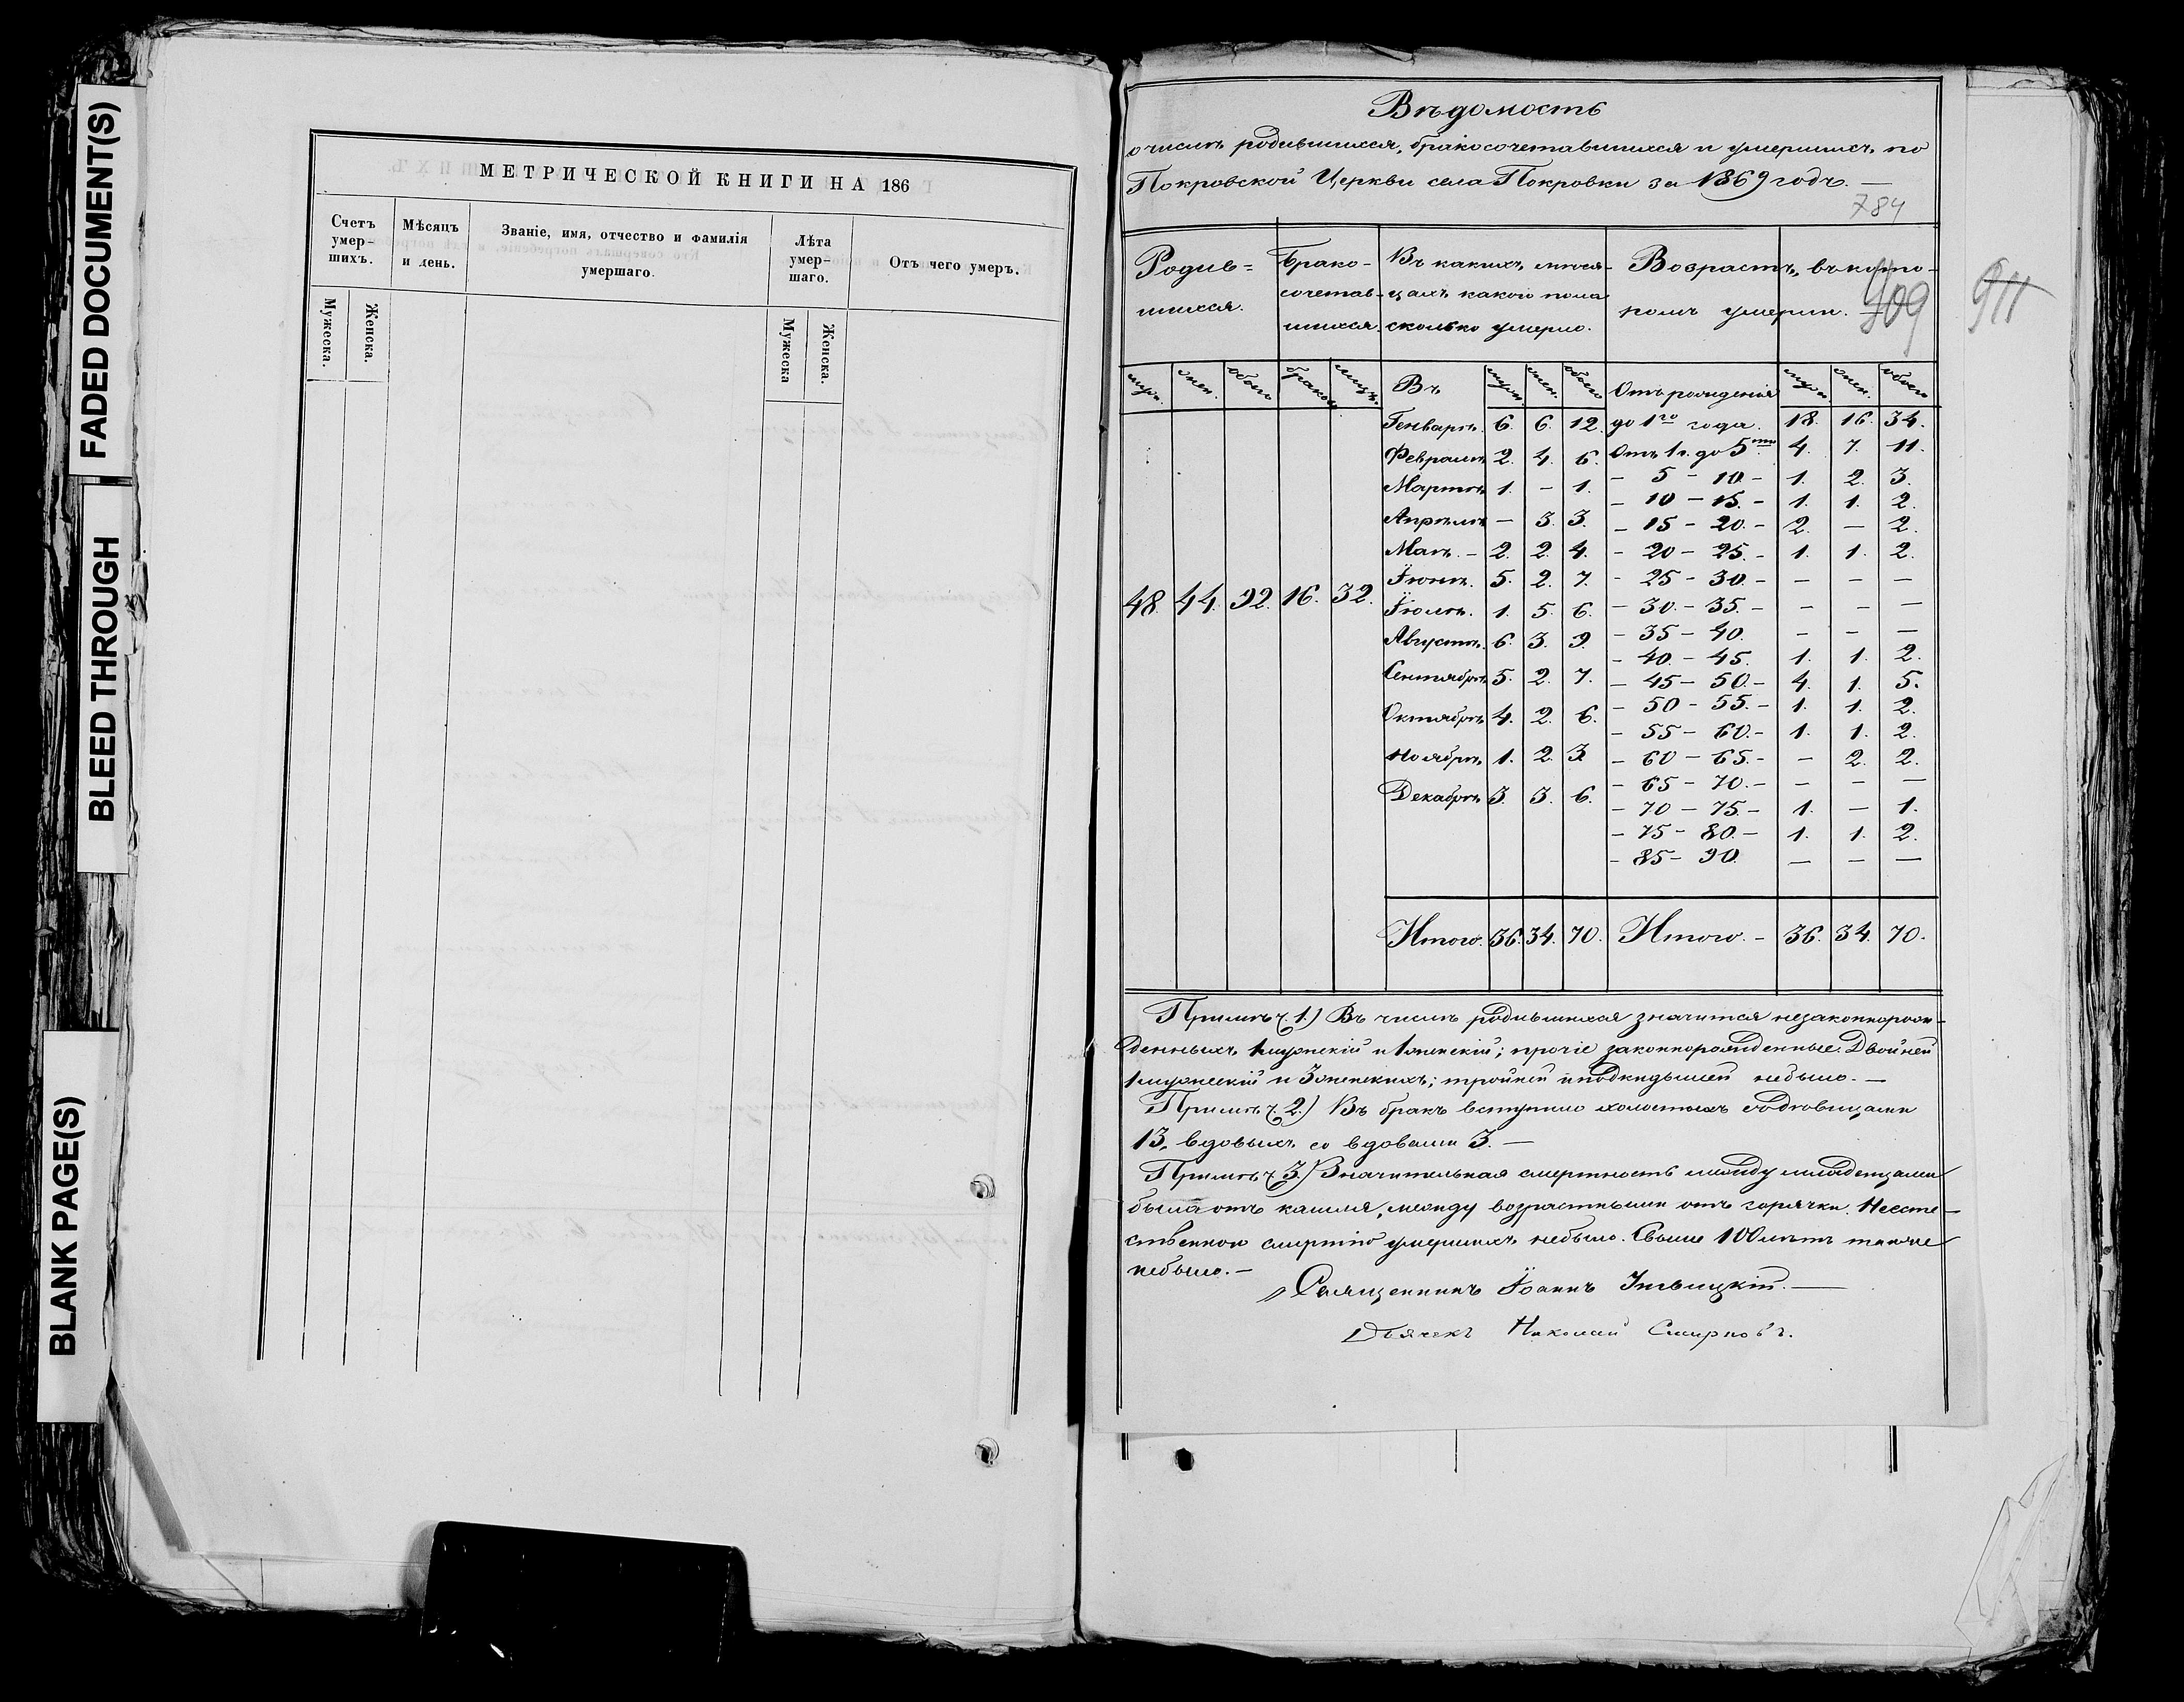 FADED DOCUMENT(S)
BLEED THROUGH
BLANK PAGE(S)
МЕТРИЧЕСКОЙ КНИГИ НА 186
Счетъ умер-шихъ.
Мѣсяцъ и день.
Званіе, имя, отчество и фамилія умершаго.
Лѣта умер-шаго.
Отъ чего умеръ.
Мужеска. Женска.
Мужеска Женска.
Вѣдомость
о числѣ родившихся, бракосочетавшихся и умершихъ по
Покровской Церкви села Покровки за 1869 годъ. —
784
409
911
Родив=шихся.
Брако-сочетав-шихся.
Въ какихъ мѣся-цахъ какого пола сколько умерло.
Возрастъ, въ кото-ромъ умерли.
муж. жен. обоего браковъ лицъ. Въ муж. жен. обоего Отъ рожденія муж. жен. обоего
48. 44. 92. 16. 32.
Генварѣ. 6. 6. 12.
Февралѣ 2. 4. 6.
Мартѣ 1. — 1.
Апрѣлѣ — 3. 3.
Маѣ. — 2. 2. 4.
Іюнѣ. 5. 2. 7.
Іюлѣ. 1. 5. 6.
Августѣ. 6. 3. 9.
Сентябрѣ 5. 2. 7.
Октябрѣ 4. 2. 6.
Ноябрѣ 1. 2. 3
Декабрѣ 3. 3. 6.
Итого. 36. 34. 70.
до 1го года. 18. 16. 34.
Отъ 1 г. до 5ти 4. 7. 11.
— 5 — 10. — 1. 2. 3.
— 10 — 15. — 1. 1. 2.
— 15 — 20. — 2. — 2.
— 20 — 25. — 1. 1. 2.
— 25 — 30. — — — —
— 30. — 35. — — — —
— 35 — 40. — — —
— 40. — 45. 1. 1. 2.
— 45 — 50. — 4. 1. 5.
— 50 — 55. — 1. 1. 2.
— 55 — 60. — 1. 1. 2.
— 60 — 65. — — 2. 2.
— 65 — 70. — — — —
— 70 — 75. — 1. — 1.
— 75 — 80. — 1. 1. 2.
— 85 — 90. — — —
Итого. — 36. 34. 70.
Примѣч. 1.) Въ числѣ родившихся значится незаконнорож-
денныхъ 1 мужскій и 1 женскій; прочіе законнорожденные. Двойней
1 мужескій и 3 женскихъ; тройней и подкидышей небыло. —
Примѣч. 2.) Въ бракъ вступило холостыхъ съ дѣвицами
13, вдовыхъ со вдовами 3. —
Примѣч. 3.) Значительная смертность между младенцами
была отъ кашля, между возрастными отъ горячки. Неесте-
ственною смертію умершихъ небыло. Свыше 100 лѣтъ также
небыло. —
Священникъ Іоаннъ
Дьячекъ Николай Смирновъ.